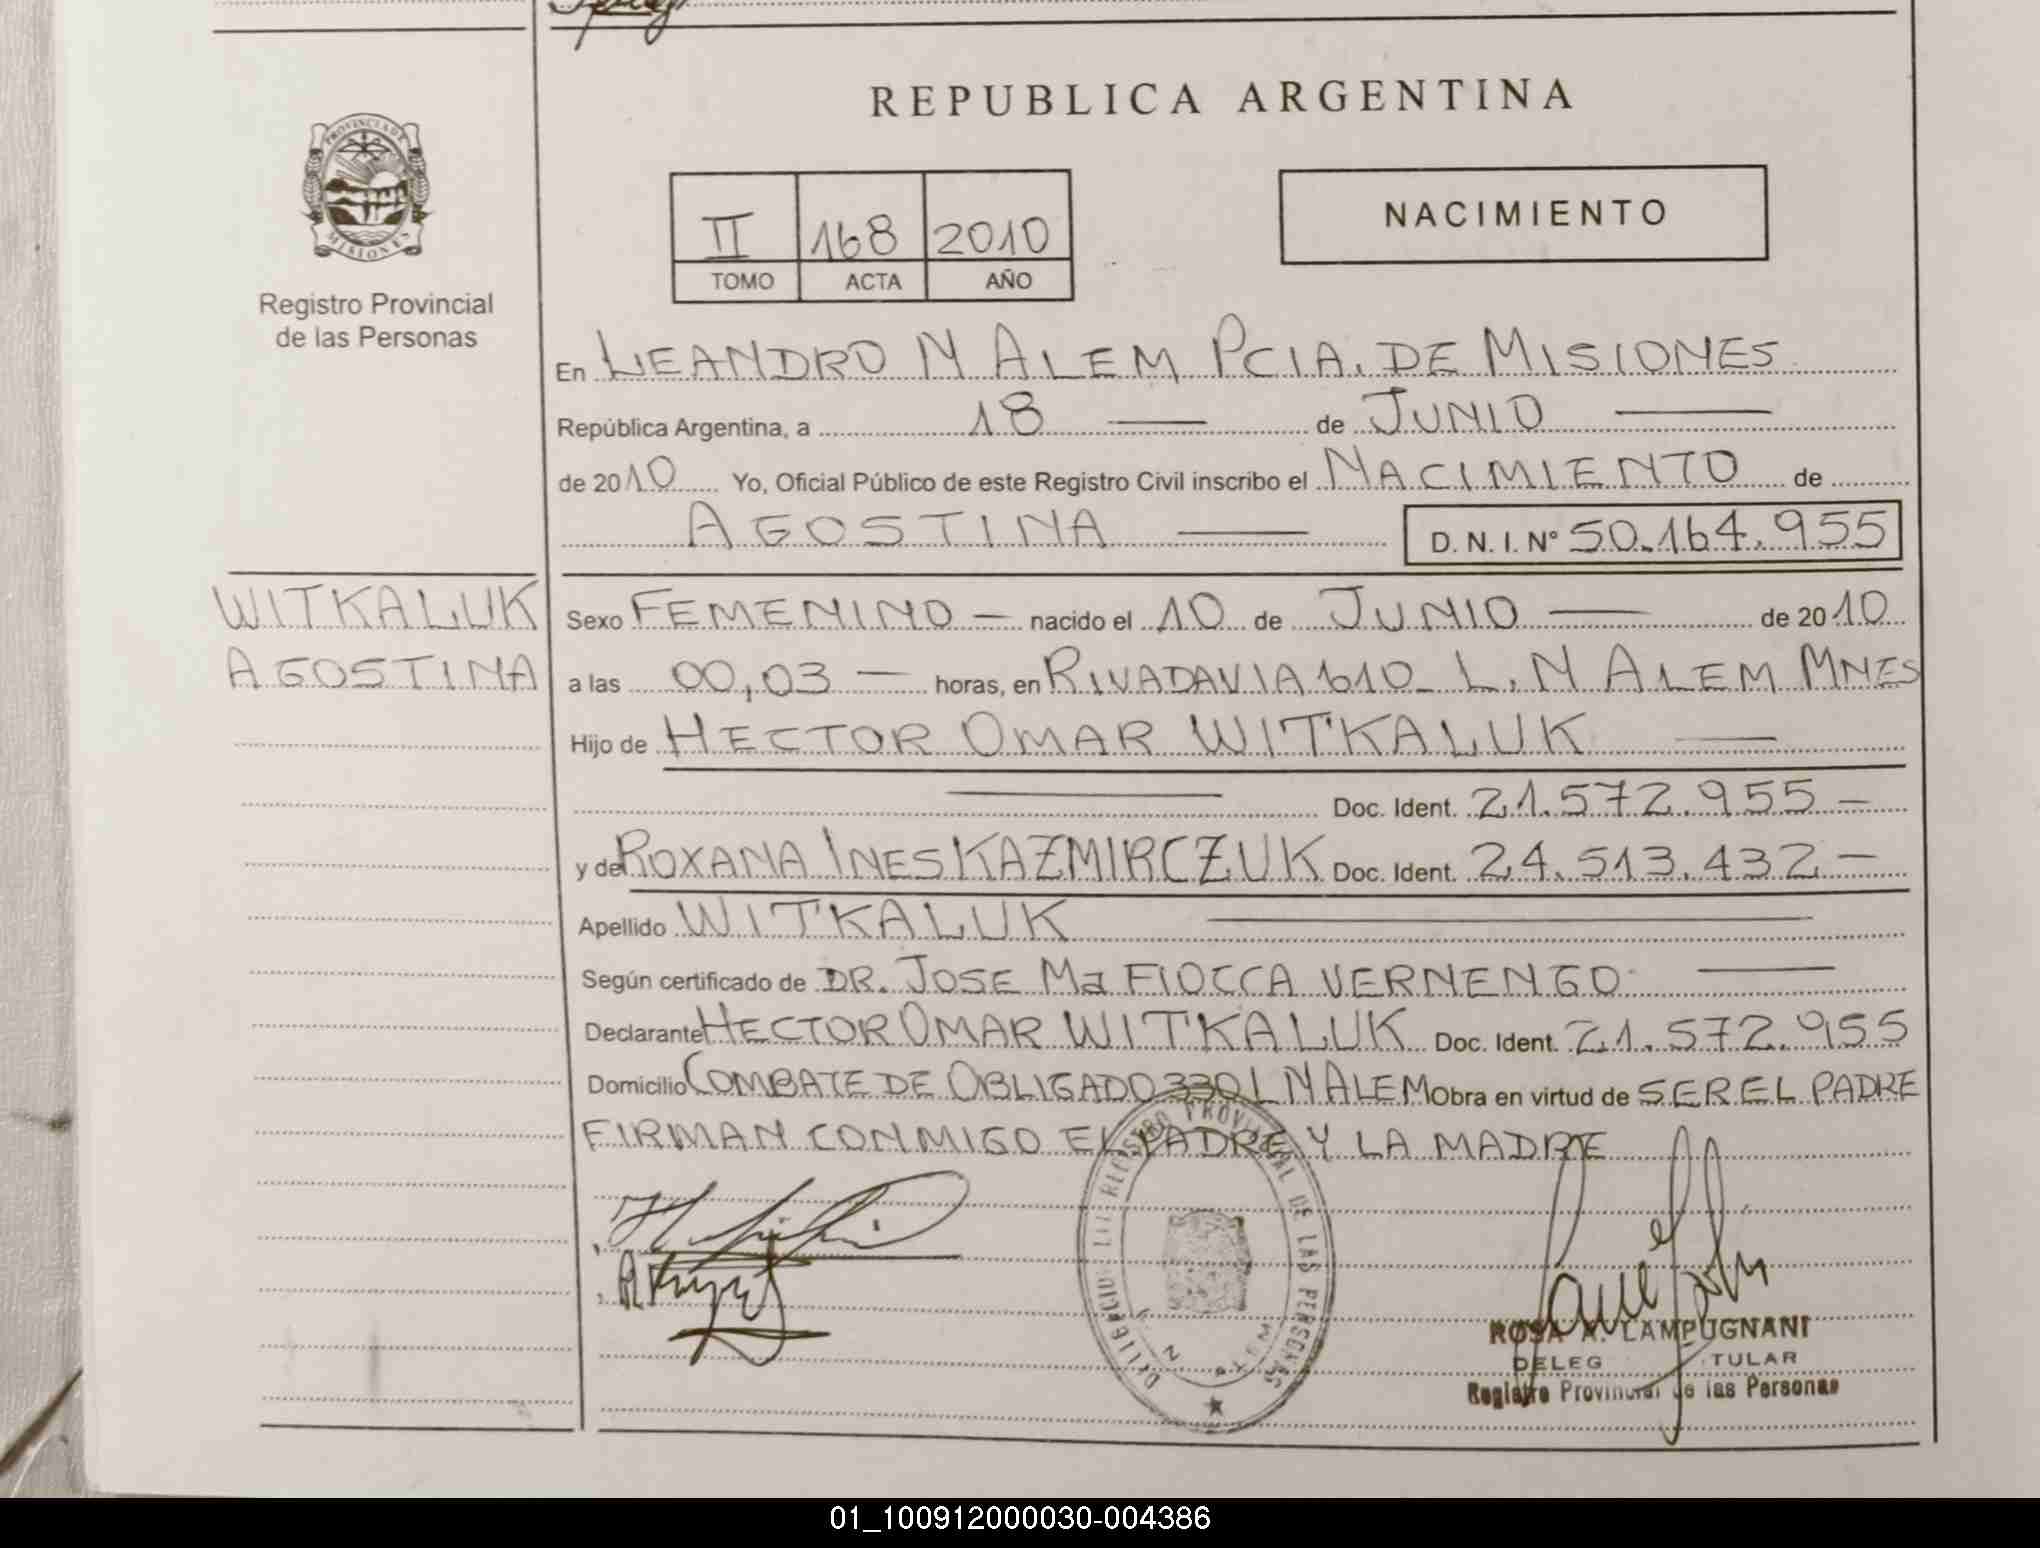 REPUBLICA ARGENTINA
PROVINCIA DE
MISIONES
Registro Provincial
de las Personas
II 168 2010
TOMO ACTA AÑO
NACIMIENTO
En LEANDRO N ALEM PCIA. DE MISIONES
República Argentina, a 18 — de JUNIO —
de 2010 Yo, Oficial Público de este Registro Civil inscribo el NACIMIENTO de
AGOSTINA — D. N. I. N° 50.164.955
WITKALUK
AGOSTINA
Sexo FEMENINO — nacido el 10 de JUNIO — de 2010
a las 00,03 — horas, en RIVADAVIA 610_ L. N ALEM MNES
Hijo de HECTOR OMAR WITKALUK —
— Doc. Ident. 21.572.955 —
y de ROXANA INES KAZMIRCZUK Doc. Ident. 24.513.432 —
Apellido WITKALUK —
Según certificado de DR. JOSE Ma FIOCCA VERNENGO —
Declarante HECTOR OMAR WITKALUK Doc. Ident. 21.572.955
Domicilio COMBATE DE OBLIGADO 330 L N ALEM Obra en virtud de SER EL PADRE
FIRMAN CONMIGO EL PADRE Y LA MADRE
REGISTRO PROVINCIAL DE LAS PERSONAS
ROSA A. LAMPUGNANI
DELEG TULAR
Registro Provincial de las Personas
01_100912000030-004386